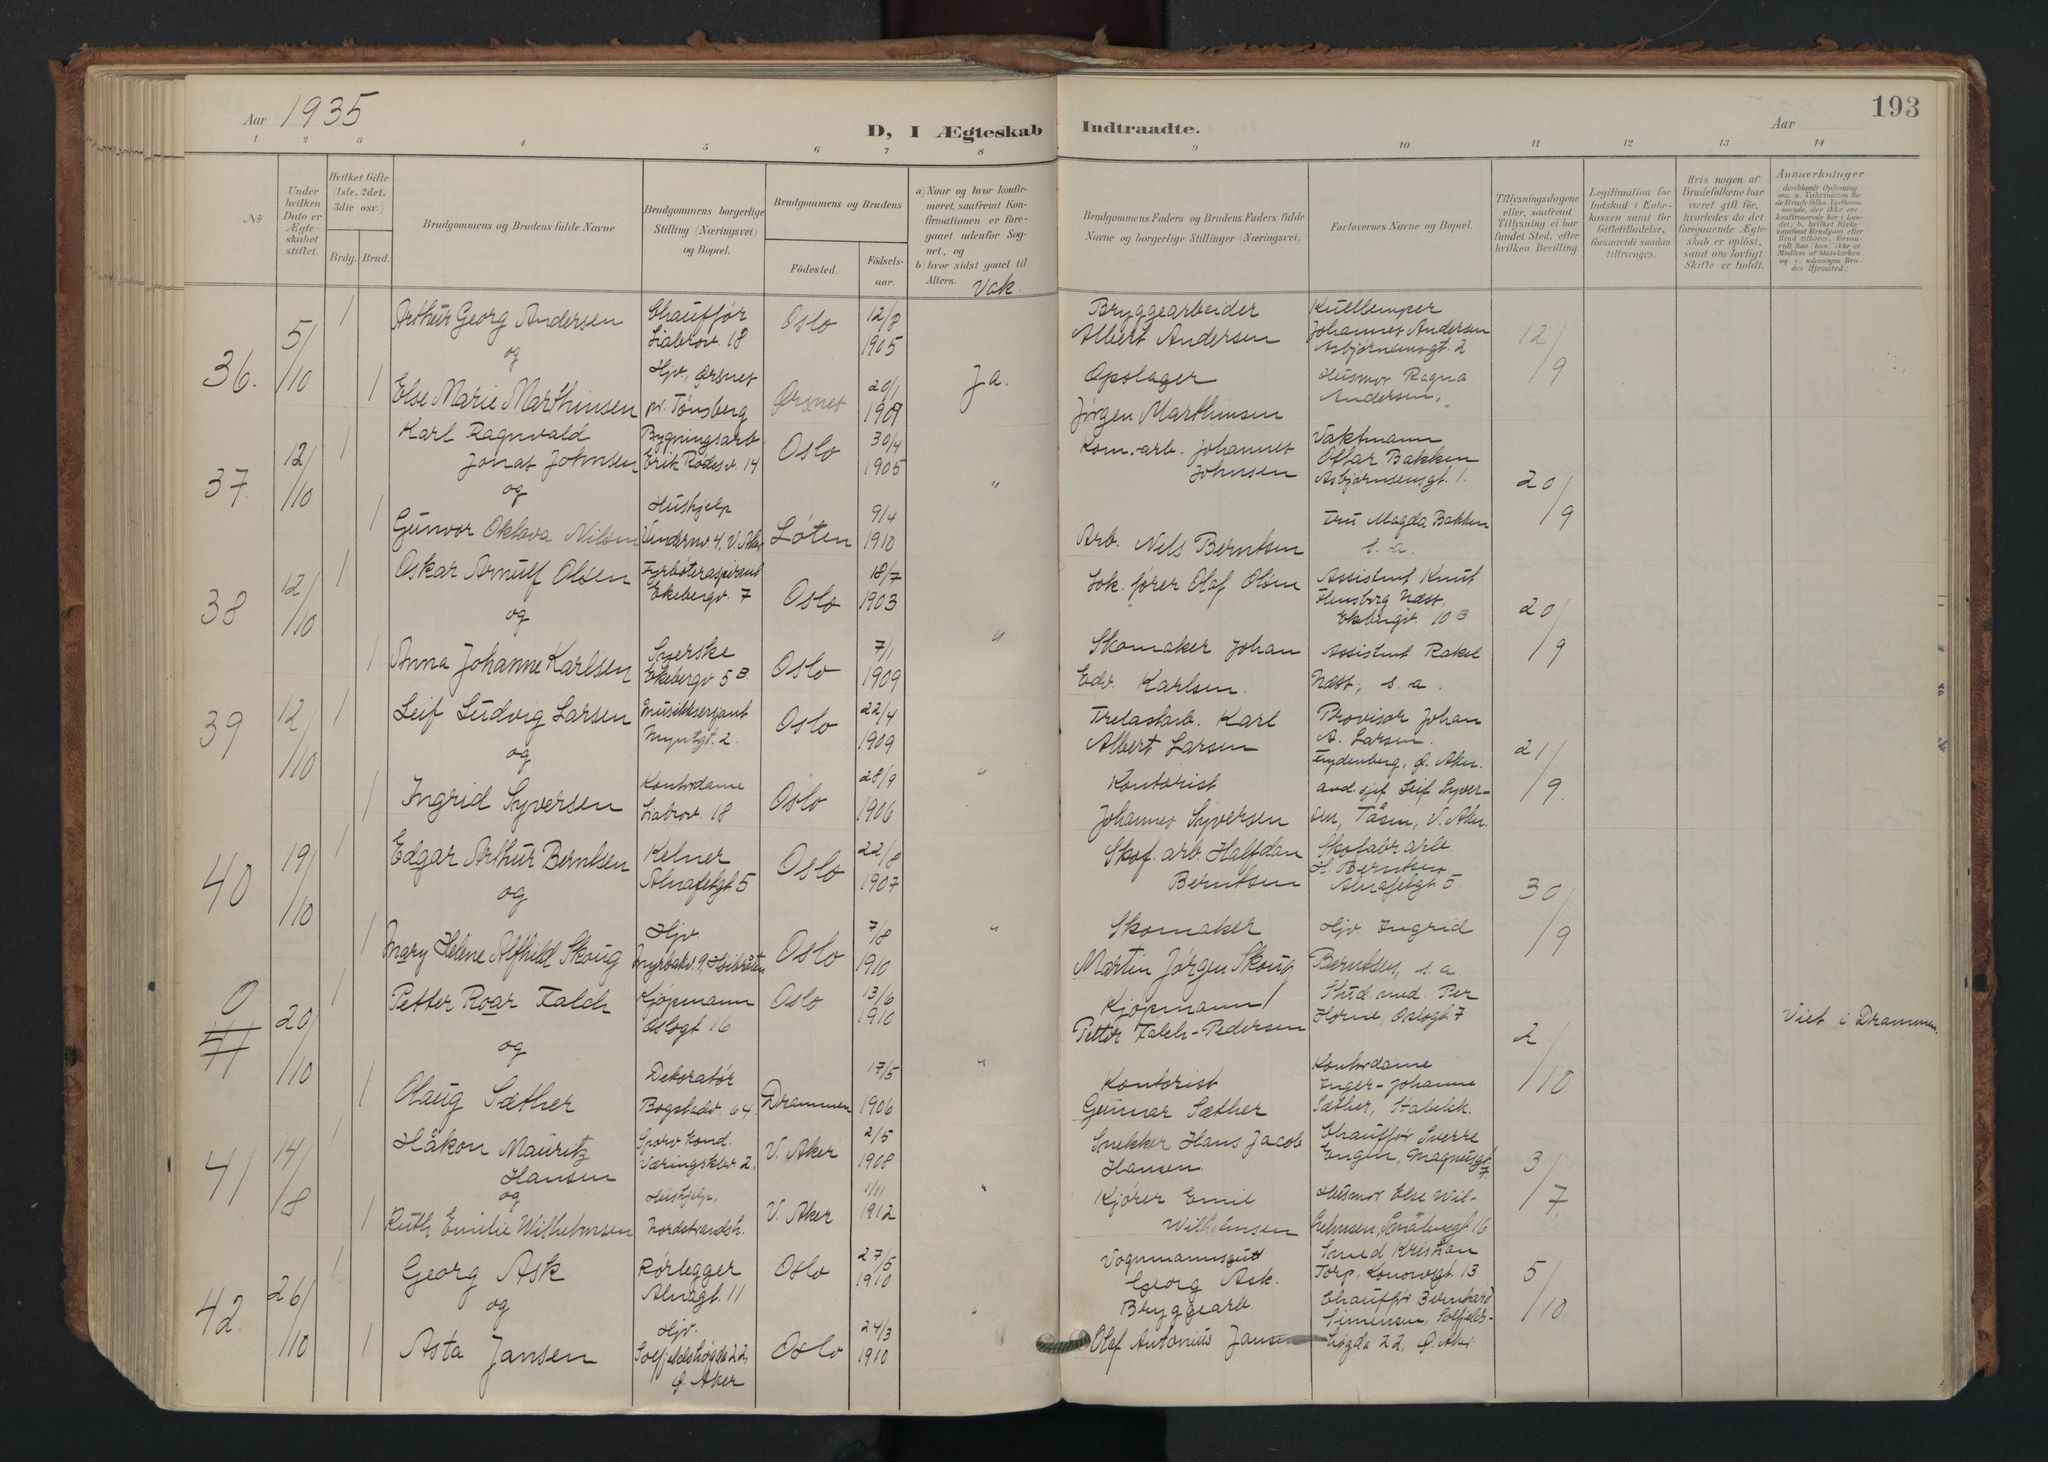 Aar 1935
D, I Ægteskab Indtraadte.
Aar
193
1 2 3 4 5 6 7 8 9 10 11 12 13 14
№
Under hvilken Dato er Ægteskabet stiftet.
Hvilket Gifte (1ste, 2det, 3die osv.)
Brdg. Brud.
Brudgommens og Brudens fulde Navne
Brudgommens borgerlige Stilling (Næringsvei) og Bopæl.
Brudgommens og Brudens
Födested. Födselsaar.
a) Naar og hvor konfirmeret, saafremt Konfirmationen er foregaaet udenfor Sognet, og
b) hvor sidst gaaet til Alters.
Vak.
Brudgommens Faders og Brudens Faders fulde Navne og borgerlige Stillinger (Næringsvei)
Forlovernes Navne og Bopæl.
Tillysningsdagene eller, saafremt Tillysning ei har fundet Sted, efter hvilken Bevilling.
Legitimation for Indskud i Enkekassen samt for Giftetilladelse, forsaavidt saadan tiltrænges.
Hvis nogen af Brudefolkene har været gift för, hvorledes da det foregaaende Ægteskab er oplöst, samt om lovligt Skifte er holdt.
Anmerkninger
36. 5/10
1 Arthur Georg Andersen
Chauffør
Liabrov. 18
Oslo
12/8 1905
og
1 Else Marie Marthinsen
Hjv, Ørsnet
pr. Tønsberg
Ørsnes
20/1 1909
Ja.
Bryggearbeider
Albert Andersen
Opslager
Jørgen Marthinsen
Kullemper
Johannes Andersen
Asbjørnsensgt. 2
Husmor Ragna
Andersen,
12/9
37. 12/10
1 Karl Ragnvald
Jonas Johnsen
Bygningsarb
Erik Rodesv. 14
Oslo
30/4 1905
og
1 Gunvor Oktava Nilsen
Hushjelp
Vindernv. 4, V. Aker
Løten
9/4 1910
"
Kom.-arb. Johannes
Johnsen
Arb. Nils Berntsen
Vaktmann
Ottar Bakken
Asbjørnsensgt. 1.
Fru Magda Bakken
s. a.
20/9
38 12/10
1 Oskar Arnulf Olsen
Fyrbøteraspirant
Ekebergv. 7
Oslo
18/7 1903
og
1 Anna Johanne Karlsen
Syerske
Ekebergv 5 B
Oslo
7/1 1909
"
Lok. fører Olaf Olsen
Skomaker Johan
Edv. Karlsen.
Assistent Knut
Næst,
Ekebergv. 10 B.
Assistent Rakel
Næst, s. a.
20/9
39 12/10
1 Leif Ludvig Larsen
Musikksersjant
Myntgt. 2.
Oslo
22/4 1909
og
1 Ingrid Syversen
Kontordame
Liabrov. 18
Oslo
28/9 1906
"
Trelastarb. Karl
Albert Larsen
Kontorist
Johannes Syversen
Provisor Johan
A. Larsen.
Frydenberg, Ø. Aker.
avd. sjef Leif Syver-
sen, Tåsen, V. Aker.
21/9.
40 19/10
1 Edgar Arthur Berntsen
Kelner
Alnafetgt 5
Oslo
22/8 1907
og
1 Mary Helene Alfhild Skoug
Hjv
Myrbakv. 9, Høibråten
Oslo
7/8 1910
"
Skof. arb. Halfdan
Berntsen
Skomaker
Martin Jørgen Skoug
Skofabr arb.
H. Berntsen
Alnafetgt 5
Hjv. Ingrid
Berntsen, s. a.
30/9
0
41 20/10
1 Petter Roar Falch
Kjøpmann
Oslogt 16
Oslo
13/6 1910
og
1 Olaug Sæther
Dekoratør
Bogstadv. 64
Drammen
17/5 1906
"
Kjøpmann
Petter Falch-Pedersen
Kontorist
Gunnar Sæther
Stud. med. Per
Horne, Oslogt. 7
Kontordame
Inger-Johanne
Sæther, Stabekk.
2/10
Viet i Drammen.
41 14/8
1 Håkon Mauritz
Hansen
Sporv kond.
Væringskleiv 2.
V. Aker
2/5 1908
og
1 Ruth Emilie Wilhelmsen
Hushjelp,
Nordstrandsh.
V. Aker
1/11 1912
"
Snekker Hans Jacob
Hansen.
Kjører Emil
Wilhelmsen
Chauffør Sverre
Engen, Magnusgt 7
Husmor Else Wil-
helmsen, Smålensgt 16
3/7.
42. 26/10
1 Georg Ask
Rørlegger
Alnagt. 11
Oslo
27/5 1910
og
1 Asta Jansen
Hjv.
Solfjeldshøgda 22,
Ø Aker
Oslo
24/3 1910
"
Vognmannsgutt
Georg Ask.
Bryggearb.
Olaf Antonius Jansen
Smed Kristian
Torp, Konowsgt. 13
Chauffør Bernhard
Simensen, Solfjelds-
høgda 22, Ø. Aker
5/10